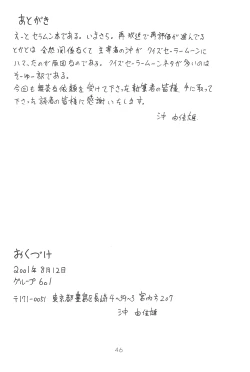 あとがき
えっとセラムン本である。いまさら。再放送で再評価が進んでる
とかとは全然関係なくて主宰者の沖がクイズセーラームーンに
ハマったのが原因なのである。クイズセーラームーンネタが多いのは
そーゆー訳である。
今回も無茶な依頼を受けて下さった執筆者の皆様、手に取って
下さった読者の皆様に感謝いたします。
沖 由佳雄
おくづけ
2001年8月12日
グループ601
〒171-0051 東京都豊島区長崎4-29-3 宮内方207
沖 由佳雄
46